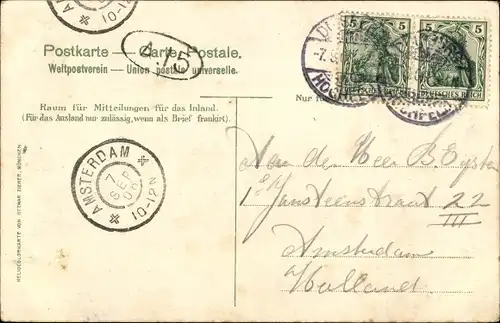 10-12
5 5 5 5
Postkarte — Carte Postale.
Weltpostverein — Union postale universelle.
A.15
-7.
HOCHFELD
DEUTSCHES REICH
Raum für Mitteilungen für das Inland.
(Für das Ausland nur zulässig, wenn als Brief frankirt).
Nur für
AMSTERDAM
7
SEP
10-12N
Aan den Heer B. Eysten
Jan Steenstraat 22
III
Amsterdam
Holland.
HELIOCOLORKARTE VON OTTMAR ZIEHER, MÜNCHEN